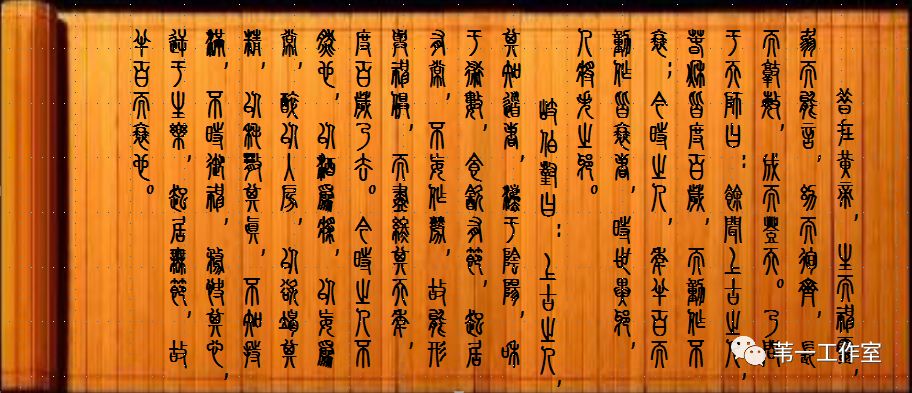 昔在黃帝,生而神靈,
弱而能言,幼而徇齊,長
而敦敏,成而登天。乃問
于天師曰:餘聞上古之人,
春秋皆度百歲,而動作不
衰;今時之人,年半百而
動作皆衰者,時世異耶,
人將失之耶。
岐伯對曰:上古之人,
其知道者,法于陰陽,和
于術數,食飲有節,起居
有常,不妄作勞,故能形
與神俱,而盡終其天年,
度百歲乃去。今時之人不
然也,以酒爲漿,以妄爲
常,醉以入房,以欲竭其
精,以耗散其真,不知持
滿,不時御神,務快其心,
逆于生樂,起居無節,故
半百而衰也。
苐一工作室